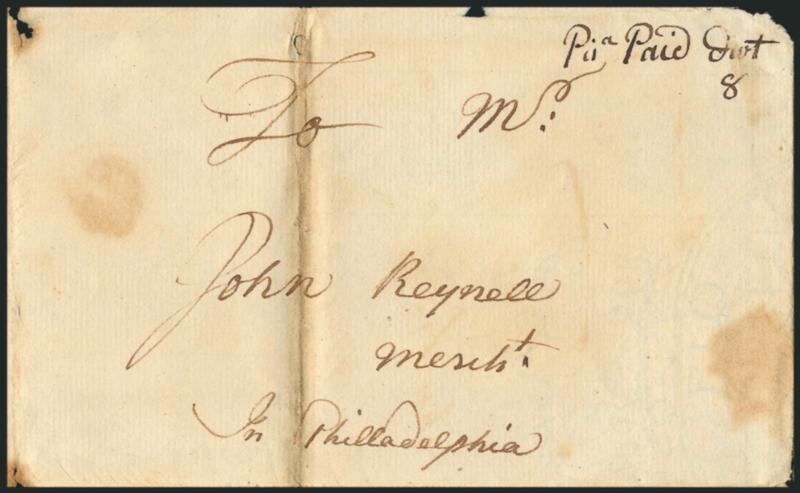 Pia Paid dwt
8
To Mr.
John Reynell
Mercht.
In Philladelphia